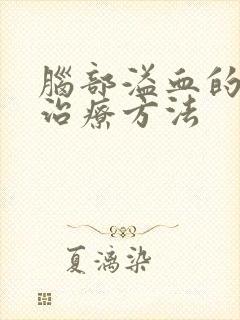 腦部溢血的
治療方法
夏漓染